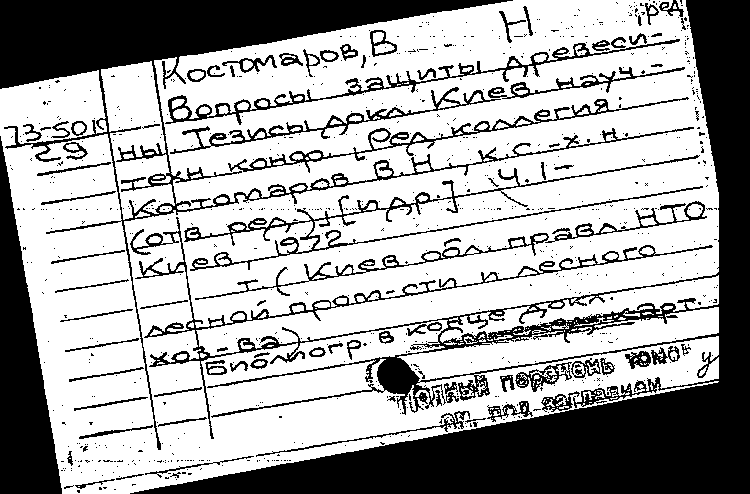 Костомаров, В Н ред
Вопросы защиты древеси-
73-5010
29
ны. Тезисы докл. Киев. науч.-
техн. конф. Ред. коллегия:
Костомаров В.Н., к.с.-х.н.
(отв. ред.) [и др.]. Ч. 1-
Киев, 1972.
т. (Киев обл. правл. НТО
лесной пром-сти и лесного
хоз-ва).
Библиогр. в конце докл.
карт.
Полный перечень томов у
см. под заглавием